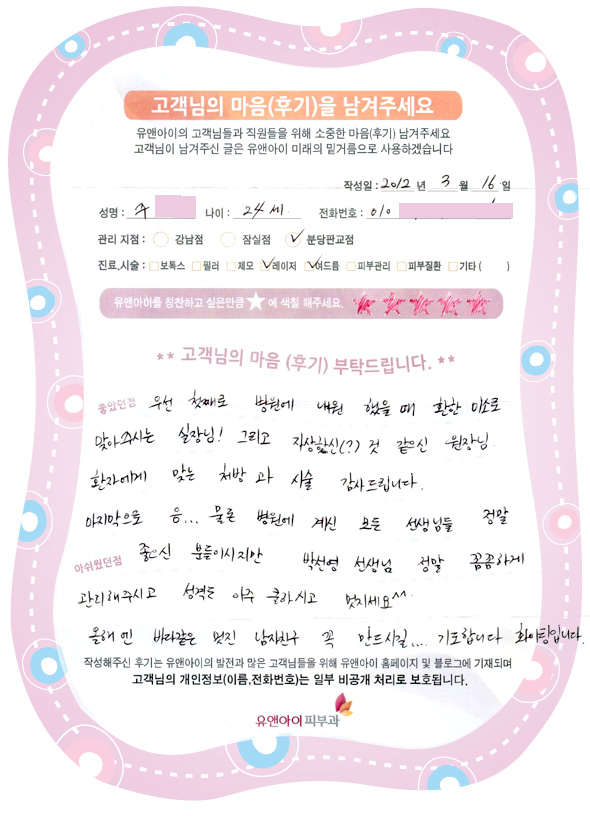 고객님의 마음(후기)을 남겨주세요
유앤아이의 고객님들과 직원들을 위해 소중한 마음(후기) 남겨주세요
고객님이 남겨주신 글은 유앤아이 미래의 밑거름으로 사용하겠습니다
작성일 : 2012 년 3 월 16 일
성명 : 주 나이 : 24세. 전화번호 : 010
관리 지점 : 강남점 잠실점 분당판교점
진료,시술 : 보톡스 필러 제모 레이저 여드름 피부관리 피부질환 기타 ( )
유앤아이를 칭찬하고 싶은만큼 ★ 에 색칠 해주세요.
** 고객님의 마음 (후기) 부탁드립니다. **
좋았던점 우선 첫째로 병원에 내원 했을 때 환한 미소로
맞아주시는 실장님! 그리고 자상하신(?) 것 같으신 원장님.
환자에게 맞는 처방과 시술 감사드립니다.
마지막으로 음... 물론 병원에 계신 모든 선생님들 정말
아쉬웠던점 좋으신 분들이시지만 박선영 선생님 정말 꼼꼼하게
관리해주시고 성격도 아주 쿨하시고 멋지세요^^
올해엔 바라같은 멋진 남자친구 꼭 만드시길.... 기도합니다 화이팅입니다.
작성해주신 후기는 유앤아이의 발전과 많은 고객님들을 위해 유앤아이 홈페이지 및 블로그에 기재되며
고객님의 개인정보(이름,전화번호)는 일부 비공개 처리로 보호됩니다.
유앤아이피부과